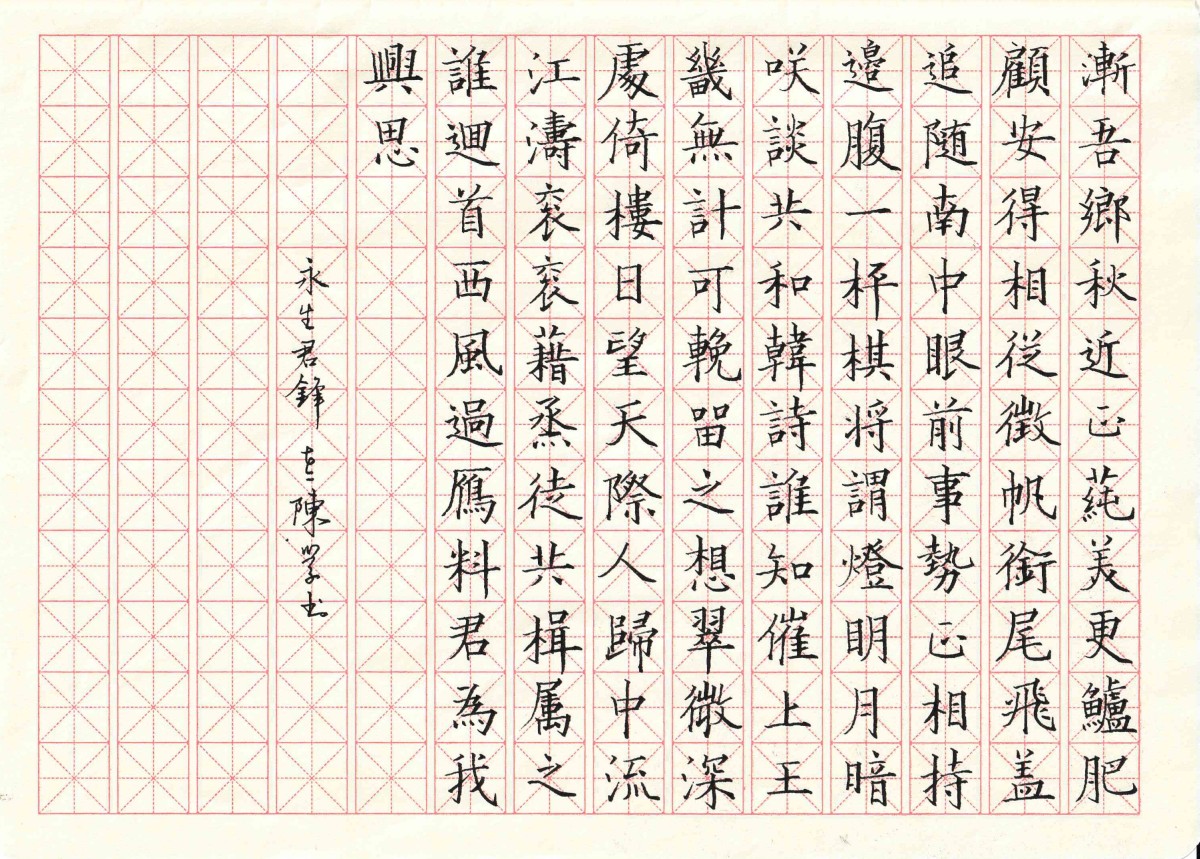 漸吾鄉秋近正蒓美更鱸肥
顧安得相從徵帆銜尾飛蓋
追随南中眼前事勢正相持
邊腹一枰棋將謂燈明月暗
咲談共和韓詩誰知催上王
畿無計可輓留之想翠微深
處倚樓日望天際人歸中流
江濤袞袞藉烝徒共楫属之
誰迴首西風過鴈料君為我
興思
永生君鋒 陳学书